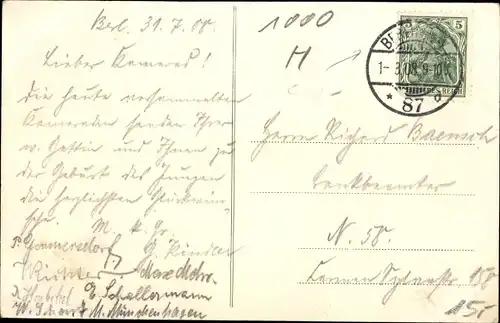 Berl. 31.7.08.
Lieber Kamerad!
Die heute versammelten
Kameraden senden Ihrer
w. Gattin und Ihnen zu
der Geburt des Jungen
die herzlichsten Glückwün-
sche. M. k. Gr.
P. Pommersdorf G. Rindler
Richter Max Mohr
E. Schallermann
W. Schort M. Münchenhagen
1000
M
5
1-8/08 9-10
* 87
Herrn Richard Baensch
Bankbeamter
N. 58.
15.-